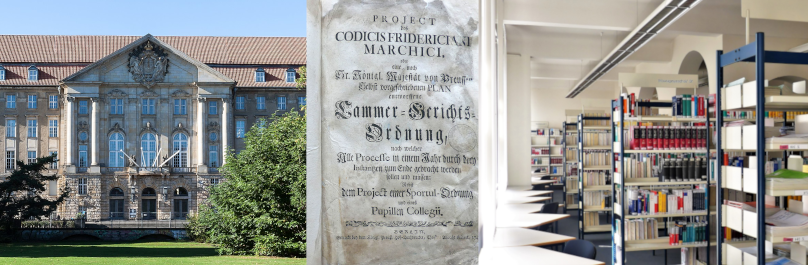 PROJECT
des
CODICIS FRIDERICIANI
MARCHICI,
oder
eine, nach
Sr. Königl. Majestät von Preussen
Selbst vorgeschriebenen PLAN
entworffene
Cammer-Gerichts-
Ordnung,
nach welcher
Alle Processe in einem Jahr durch drey
Instanzien zum Ende gebracht werden
sollen und müssen;
dem Project einer Sportul-Ordnung
Pupillen Collegii,
BERLIN,